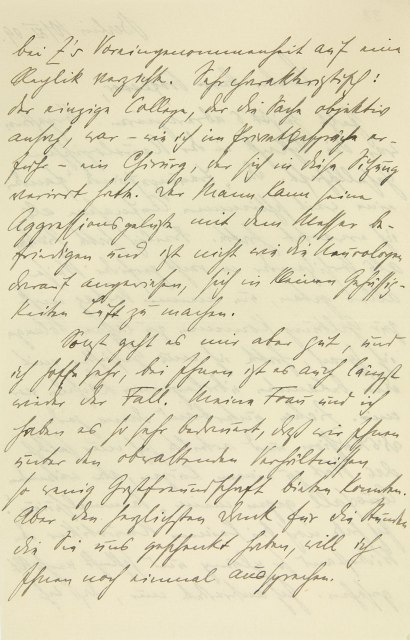 bei Z's Voreingenommenheit auf eine
Replik verzichte. Sehr charakteristisch:
der einzige College, der die Sache objektiv
ansah, war – wie ich im Privatgespräch er-
fuhr – ein Chirurg, der sich in diese Sitzung
verirrt hatte. Der Mann kann seine
Aggressionsgelüste mit dem Messer be-
friedigen und ist nicht wie die Neurologen
darauf angewiesen, sich in kleinen Gehässig-
keiten Luft zu machen.
Sonst geht es mir aber gut, und
ich hoffe sehr, bei Ihnen ist es auch längst
wieder der Fall. Meine Frau und ich
haben es so sehr bedauert, dass wir Ihnen
unter den obwaltenden Verhältnissen
so wenig Gastfreundschaft bieten konnten.
Aber den herzlichsten Dank für die Stunden
die Sie uns geschenkt haben, will ich
Ihnen noch einmal aussprechen.